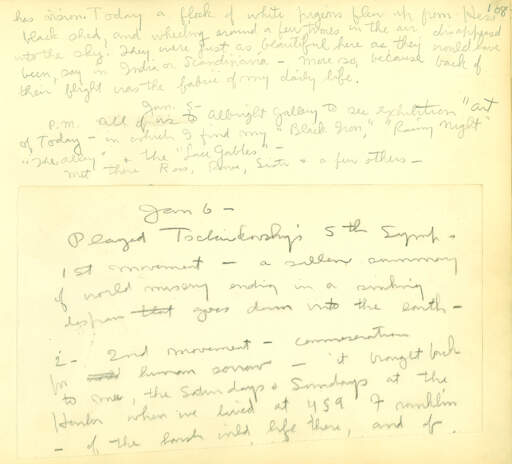 his vision. Today a flock of white pigeons flew up from Hess' 108
black shed, and wheeling around a few times in the air disappeared
into the sky. They were just as beautiful here as they would have
been, say in India or Scandinavia - more so, because back of
their flight was the fabric of my daily life.
Jan. 5 -
P.M. all of us to Albright Gallery to see exhibition "Art
of Today - in which I find my "Black Iron," "Rainy Night"
"The Alley" & the "Lace Gables" -
Met there Ross, & a few others -
Jan 6 -
Played Tschaikowsky's 5th Symp.
1st movement - a sullen summary
of world misery ending in a sinking
despair that goes down into the earth -
2 - 2nd movement - commiseration
for human sorrow - it brought back
to me, the Saturdays & Sundays at the
Harbor when we lived at 459 Franklin
- of the harsh life there, and of